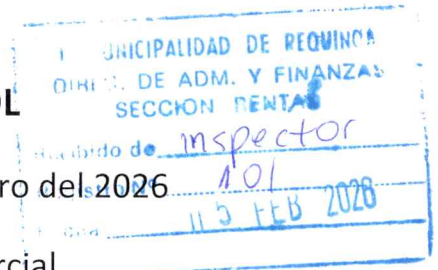 I. MUNICIPALIDAD DE REQUINOA
DIREC. DE ADM. Y FINANZAS
SECCION RENTAS
OL
Recibido de inspector
ro del 2026
Nº 101
05 FEB 2026
rcial